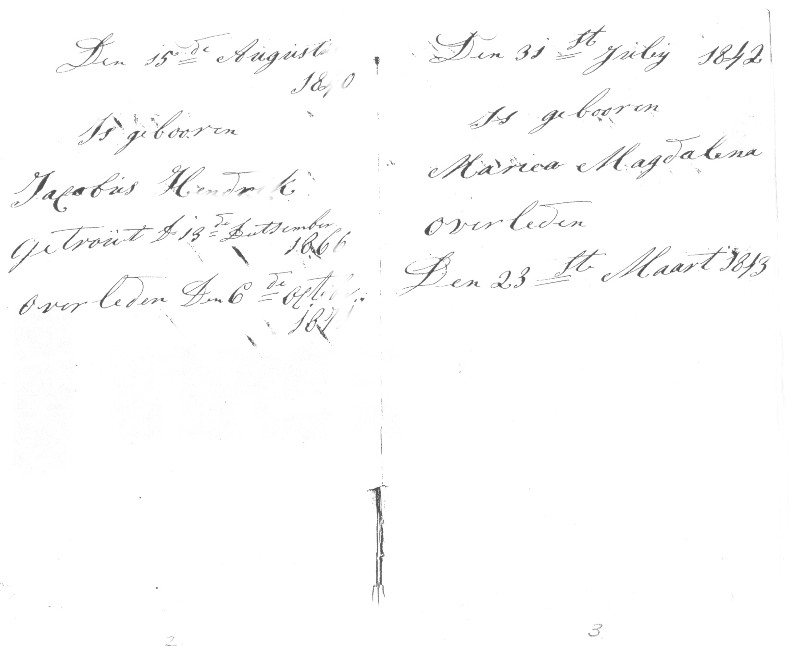 Den 15de August
1840
Is gebooren
Jacobus Hendrik
getrout D 13de
1866
overleden Den 6de
Den 31st Julÿ 1842
Is gebooren
Marica Magdalena
overleden
Den 23st Maart 1843
2
3